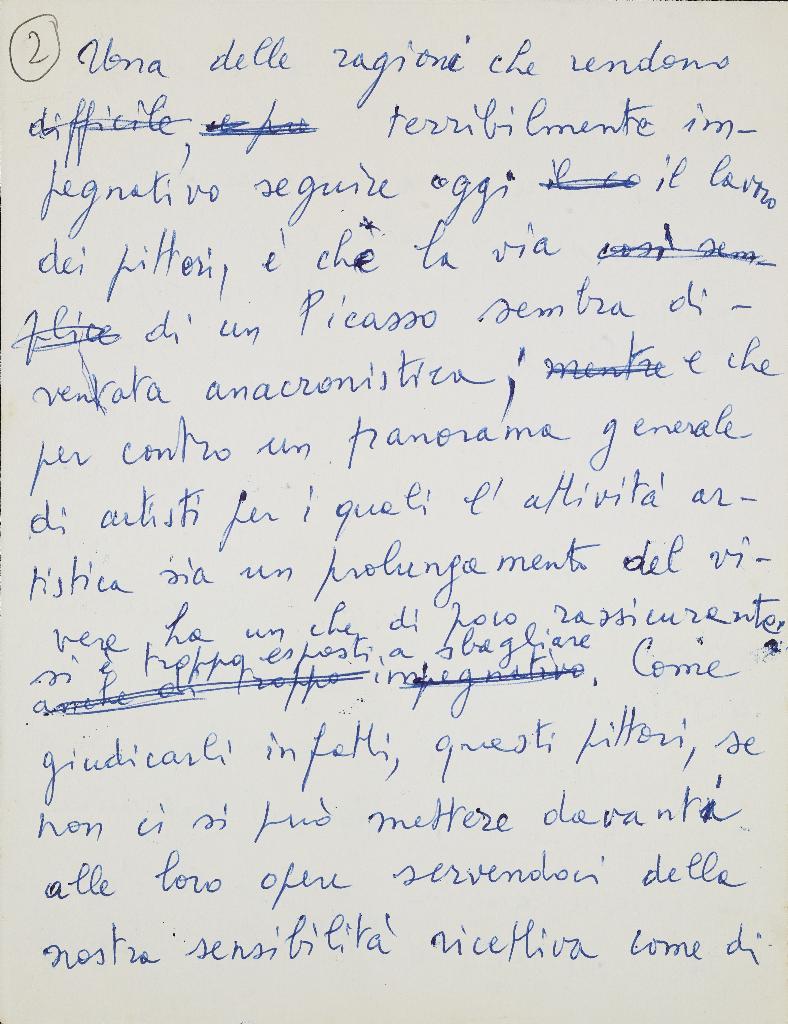 2 Una delle ragioni che rendono
difficile, e pu terribilmente im-
pegnativo seguire oggi il co il lavoro
dei pittori, è chè la via così sem-
plice di un Picasso sembra di-
ventata anacronistica, mentre e che
per contro un panorama generale
di artisti per i quali l'attività ar-
tistica sia un prolungamento del vi-
vere ha un che di poco rassicurante.
si è troppo esposti a sbagliare
anche di troppo impegnativo. Come
giudicarli infatti, questi pittori, se
non ci si può mettere davanti
alle loro opere servendoci della
nostra sensibilità ricettiva come di